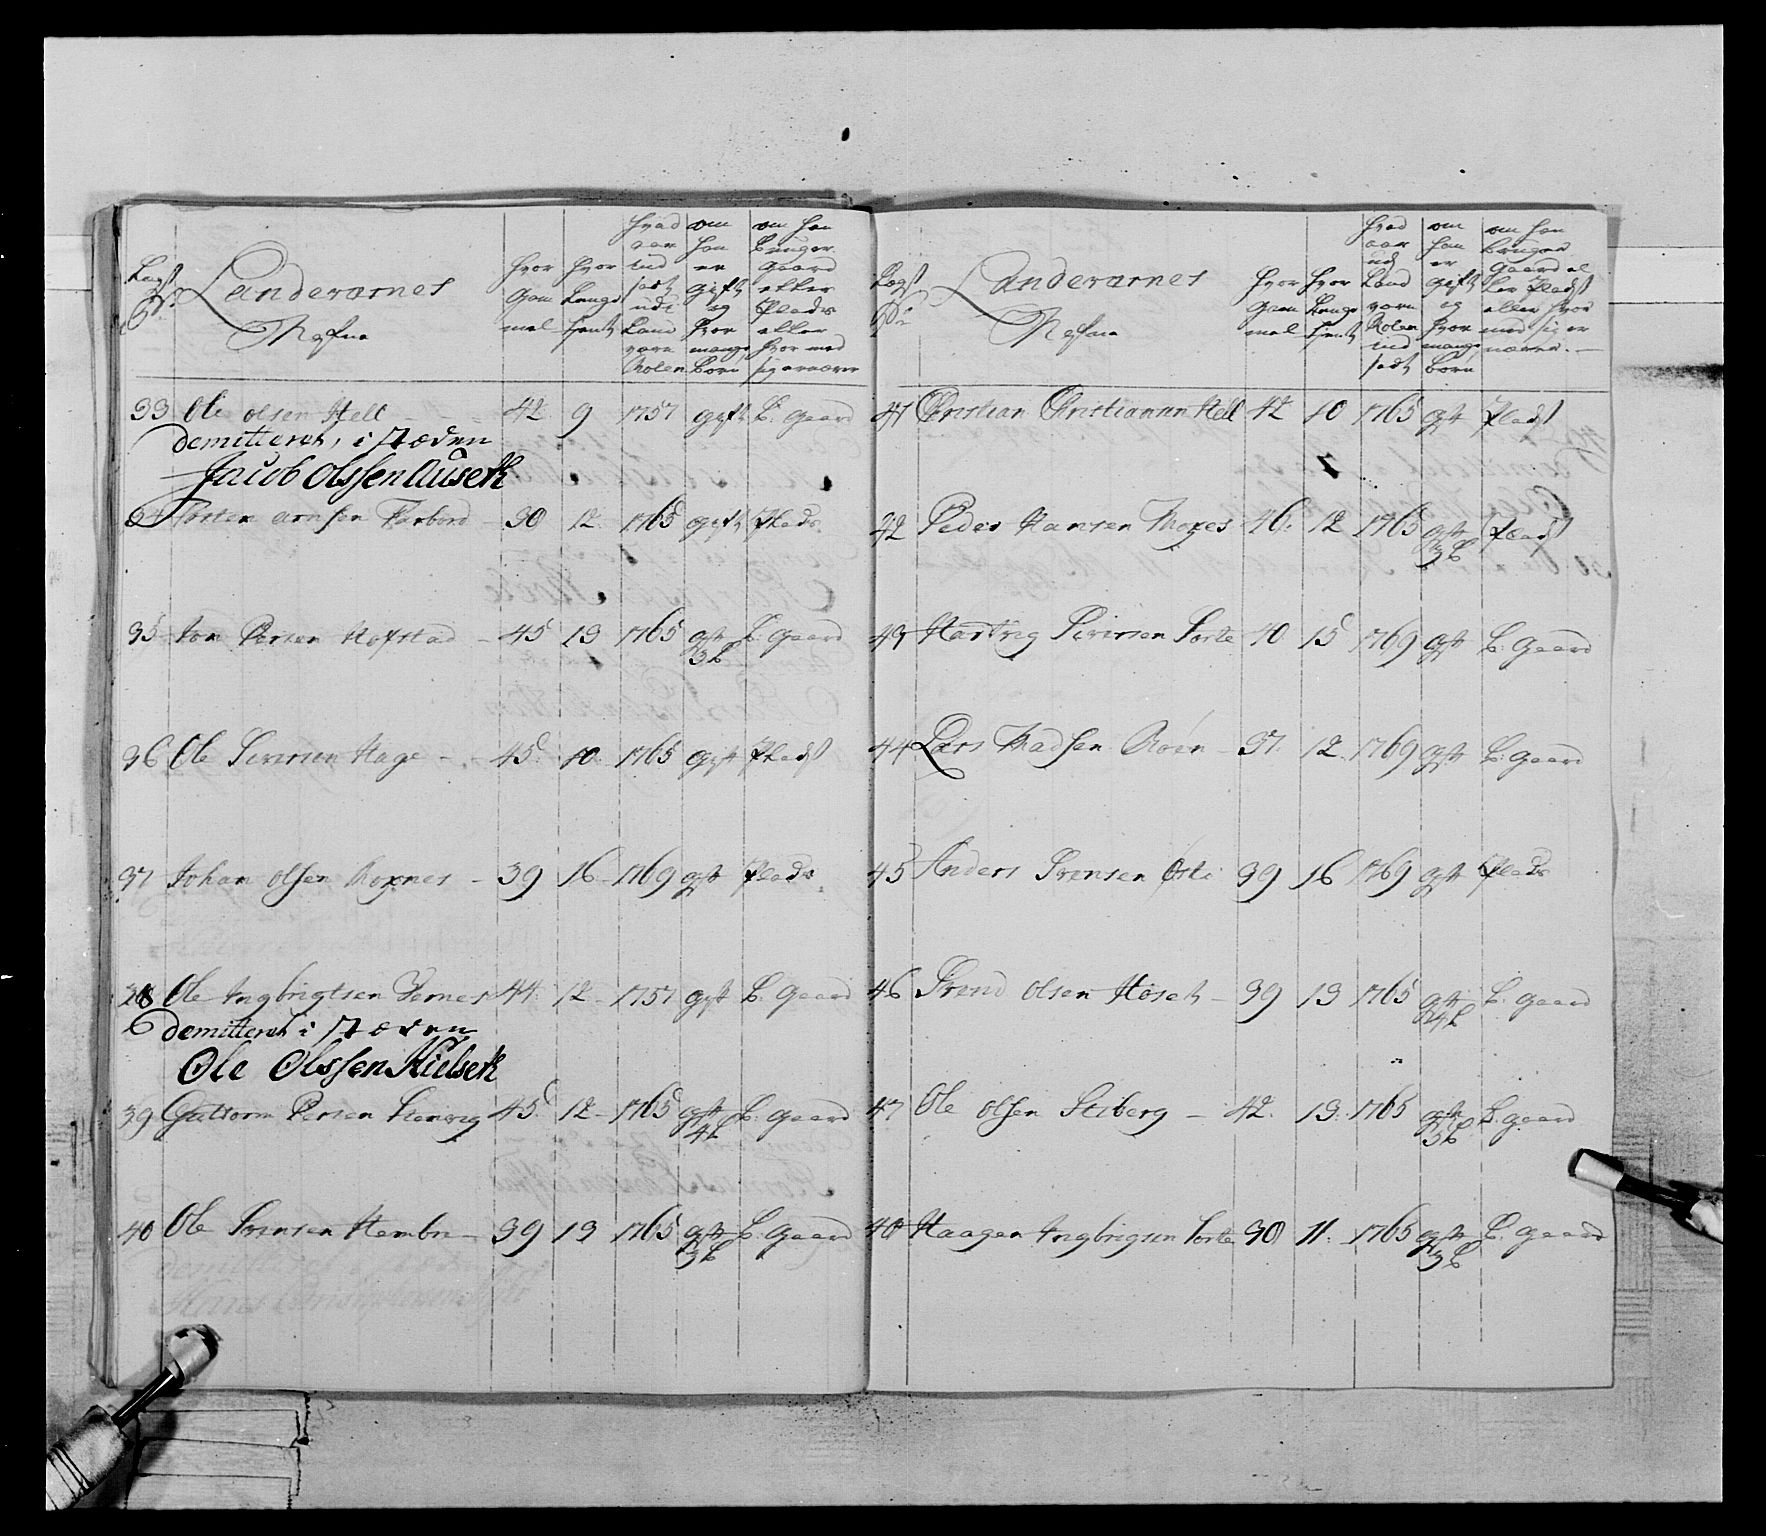 Lagd No
Landeværnes Nafne
Hvor Gammel
Hvor Længe tient
Hvad aar ind sadt udi Land værn Rolen
om han er gift og Hvor mange Børn
om han bruger gaard eller Plads eller Hvor med sig ernærer
33 Ole olsen Hell - - 42 9 1757 gift B: gaard
demitteret, i Stæden
Jacob Olssen Auset
34 Arnsen 30 12 1765 gift Plads
35 Jon Persen Hofstad - 45 13 1765 gift 3 b B: gaard
36 Ole Siversen Hage - - 45 10 1765 gift Plads
37 Johan olsen Moxnes - 39 16 1769 gift Plads
38 Ole Ingbrigtsen Vernes 44 12 1757 gift B: gaard
demitteret i Stæden
Ole Olssen Hielset
39 Guttorm Persen 45 12 1765 gift 4 b B: gaard
40 Ole Svensen Hembre - 39 13 1765 gift 3 b B: gaard
Lagd No
Landeværnes Nafne
Hvor Gammel
Hvor Længe tient
Hvad aar udj Land værn Rolen ind sadt
om han er gift og Hvor mange børn
om han bruger Gaard eller Plads eller Hvor med sig er nærer. -
41 Christian Christiansen Hell 42 10 1765 gift Plads
42 Peder Hansen Moxes 46 12 1765 gift 3 b Plads
43 Hartvig Siversen 40 15 1769 gift B: gaard
44 Lars Madsen Moen - 37 12 1769 gift B: gaard
45 Anders Svensen 39 16 1769 gift Plads
46 Trond olsen Høset - 39 13 1765 gift 4 b B: gaard
47 Ole olsen Stiberg - 42 13 1765 gift 3 b B: gaard
48 Haagen Ingbrigsen 30 11 1765 gift 3 b B: gaard